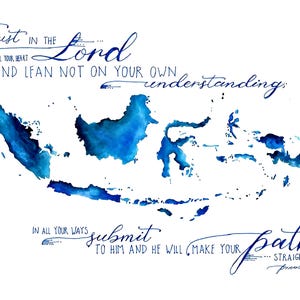 ust IN THE Lord
YOUR HEART
ND LEAN NOT ON YOUR OWN
understanding;
IN ALL YOUR WAYS submit
TO HIM AND HE WILL MAKE YOUR path
STRAIG